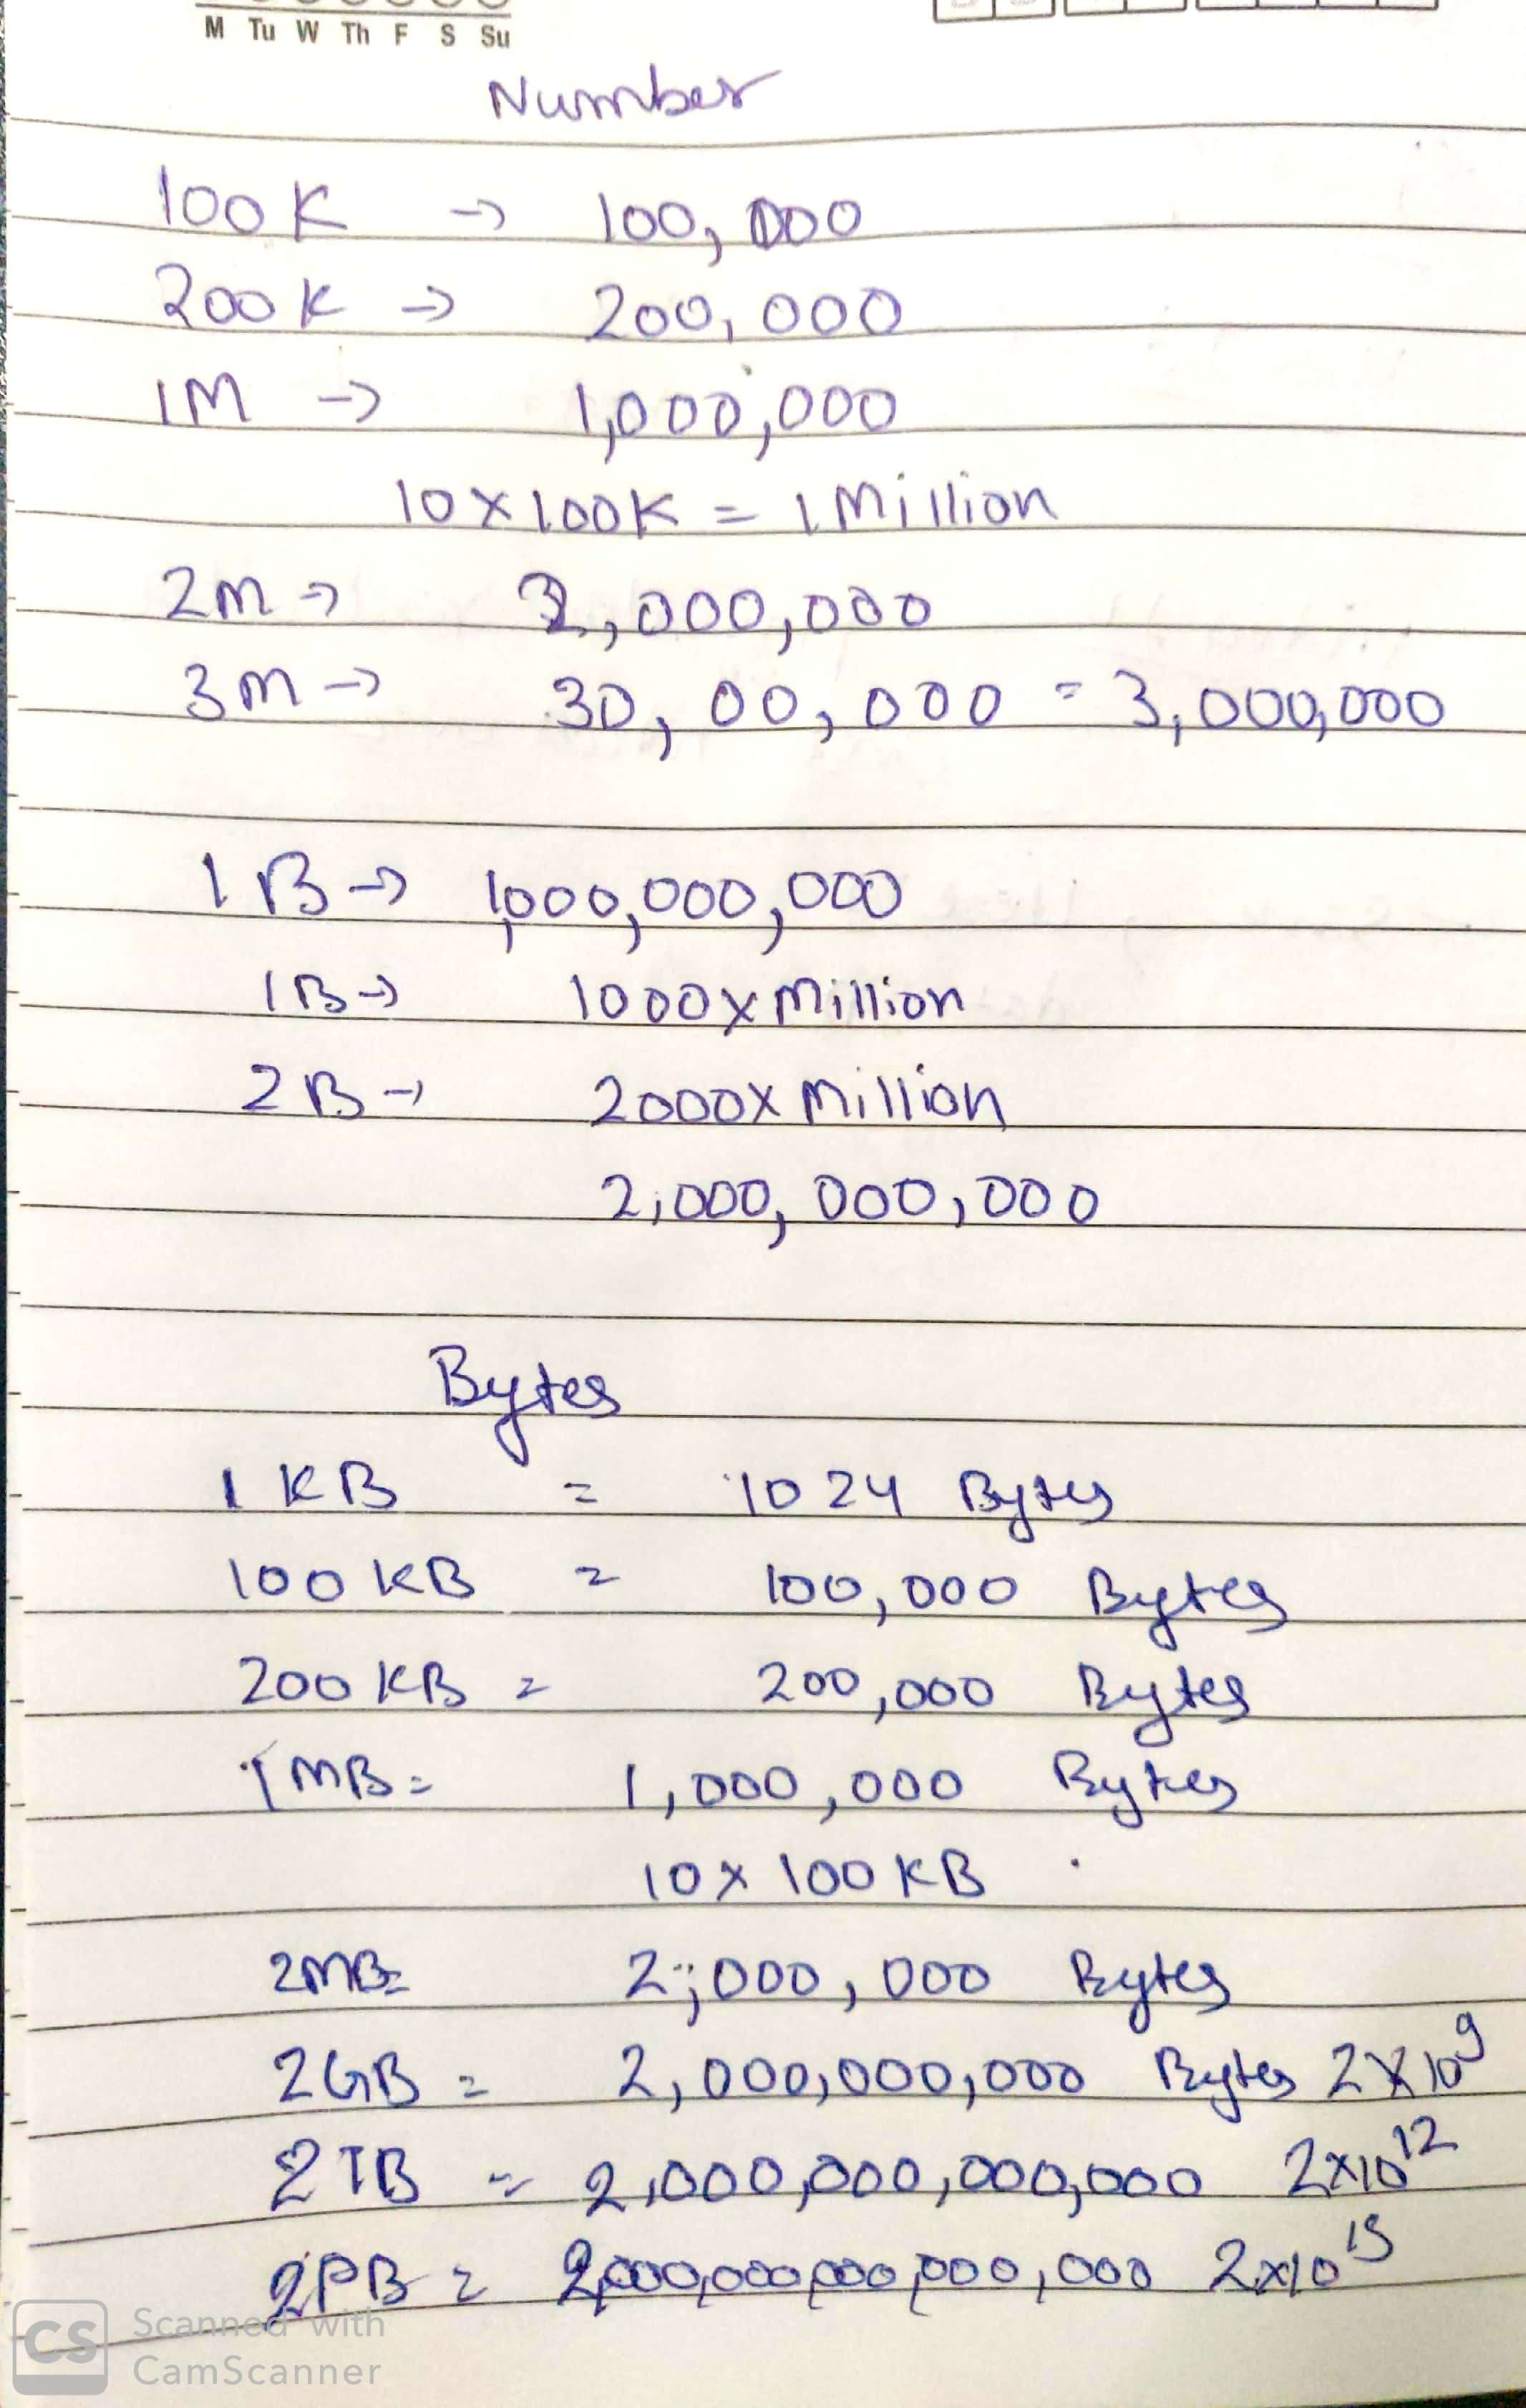 M Tu W Th F S Su
Number
100K → 100,000
200K → 200,000
1M → 1,000,000
10 x 100K = 1 Million
2M → 2,000,000
3M → 30,00,000 = 3,000,000
1B → 1,000,000,000
1B → 1000 x Million
2B → 2000 x Million
2,000,000,000
Bytes
1 KB = 1024 Bytes
100 KB = 100,000 Bytes
200 KB = 200,000 Bytes
1 MB = 1,000,000 Bytes
10 x 100 KB
2MB = 2,000,000 Bytes
2GB = 2,000,000,000 Bytes 2x10⁹
2TB = 2,000,000,000,000 2x10¹²
2PB = 2,000,000,000,000,000 2x10¹⁵
CS Scanned with
CamScanner